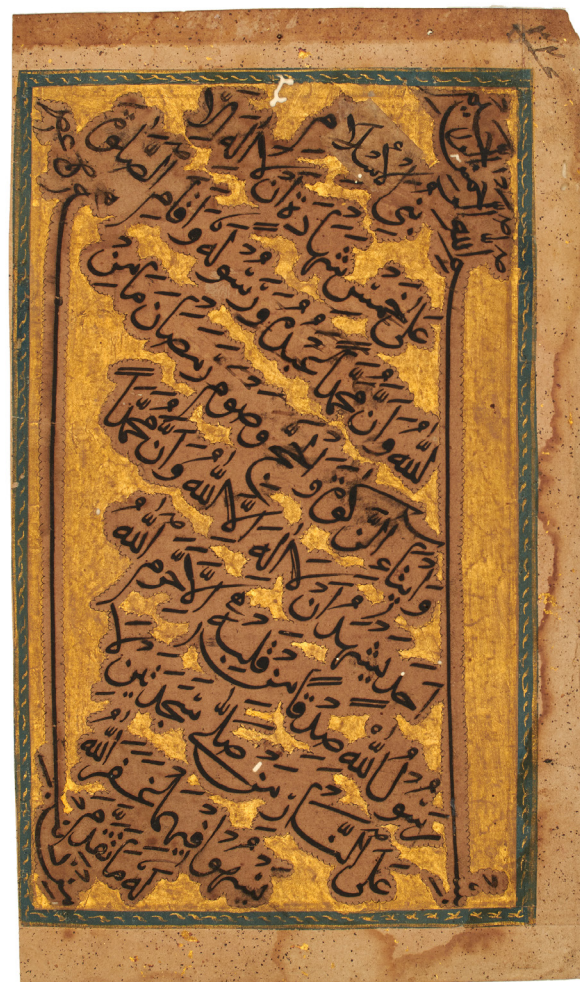 بُنِيَ الأسلام
عَلى خَمسٍ شهادَةِ اَن لا اِلهَ اِلّا
اللهُ وَاَنَّ مُحمَّداً عَبدُهُ وَرَسُولُهُ وَاِقامِ الصَّلوةِ
وَايتاءِ الزَّكوةِ وَالحَجِّ وَصَومِ رَمَضانَ مَا مِن
اَحَدٍ يَشهَدُ اَن لا اِلهَ اِلَّا اللهُ وَاَنَّ مُحمَّداً
رَسُولُ اللهِ صِدقاً مِن قَلبِهِ اِلّا حَرَّمَ اللهُ
عَلَى النَّارِ مَن صَلّى سَجدَتَينِ لا
يَسهُو فيهِما غَفَرَ اللهُ
لَهُ ما تَقَدَّمَ